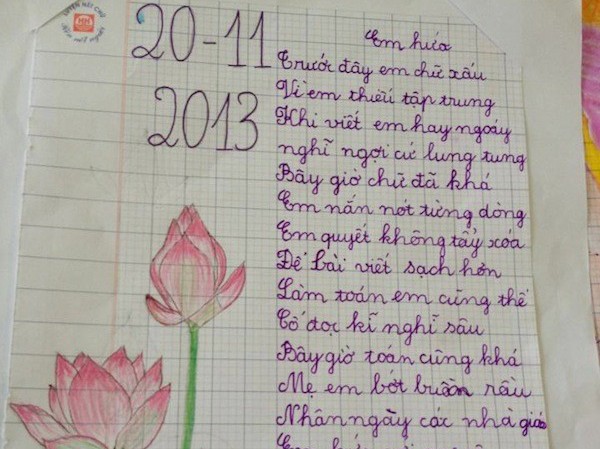 20-11
2013
Em hứa
Trước đây em chữ xấu
Vì em thiếu tập trung
Khi viết em hay ngoáy
nghĩ ngợi cứ lung tung
Bây giờ chữ đã khá
Em nắn nót từng dòng
Em quyết không tẩy xóa
Để bài viết sạch hơn
Làm toán em cũng thế
Cố đọc kĩ nghĩ sâu
Bây giờ toán cũng khá
Mẹ em bớt buồn rầu
Nhân ngày các nhà giáo